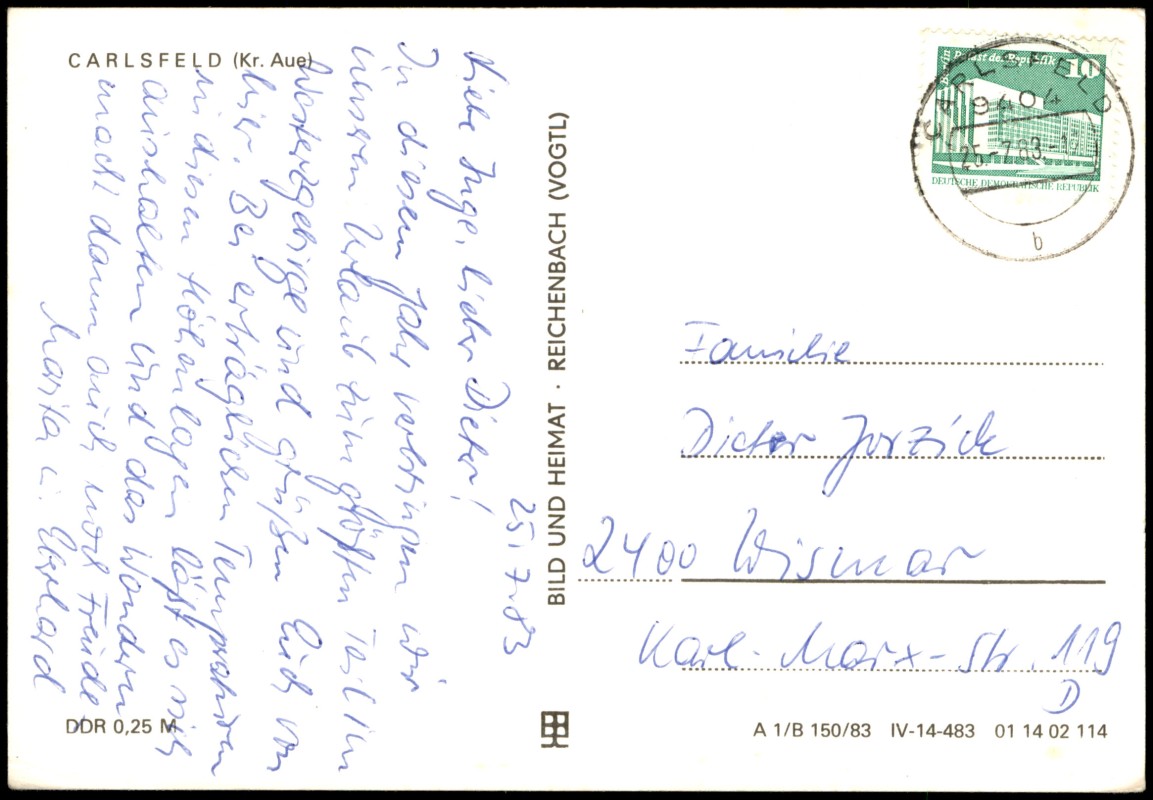 CARLSFELD (Kr. Aue)
25.7.83
Liebe Inge, lieber Dieter!
In diesem Jahr verbringen wir
unseren Urlaub zum größten Teil im
Westerzgebirge und grüßen Euch von
hier. Bei erträglichen Temperaturen
in diesen Höhenlagen läßt es sich
aushalten und das Wandern
macht dann auch noch Freude
Marita u. Eberhard
DDR 0,25 M
BILD UND HEIMAT · REICHENBACH (VOGTL)
Berlin Palast der Republik 10
DEUTSCHE DEMOKRATISCHE REPUBLIK
CARLSFELD
9404
25.-7.83.-
b
Familie
Dieter Jorzick
2400 Wismar
Karl-Marx-Str. 119
D
A 1/B 150/83 IV-14-483 01 14 02 114